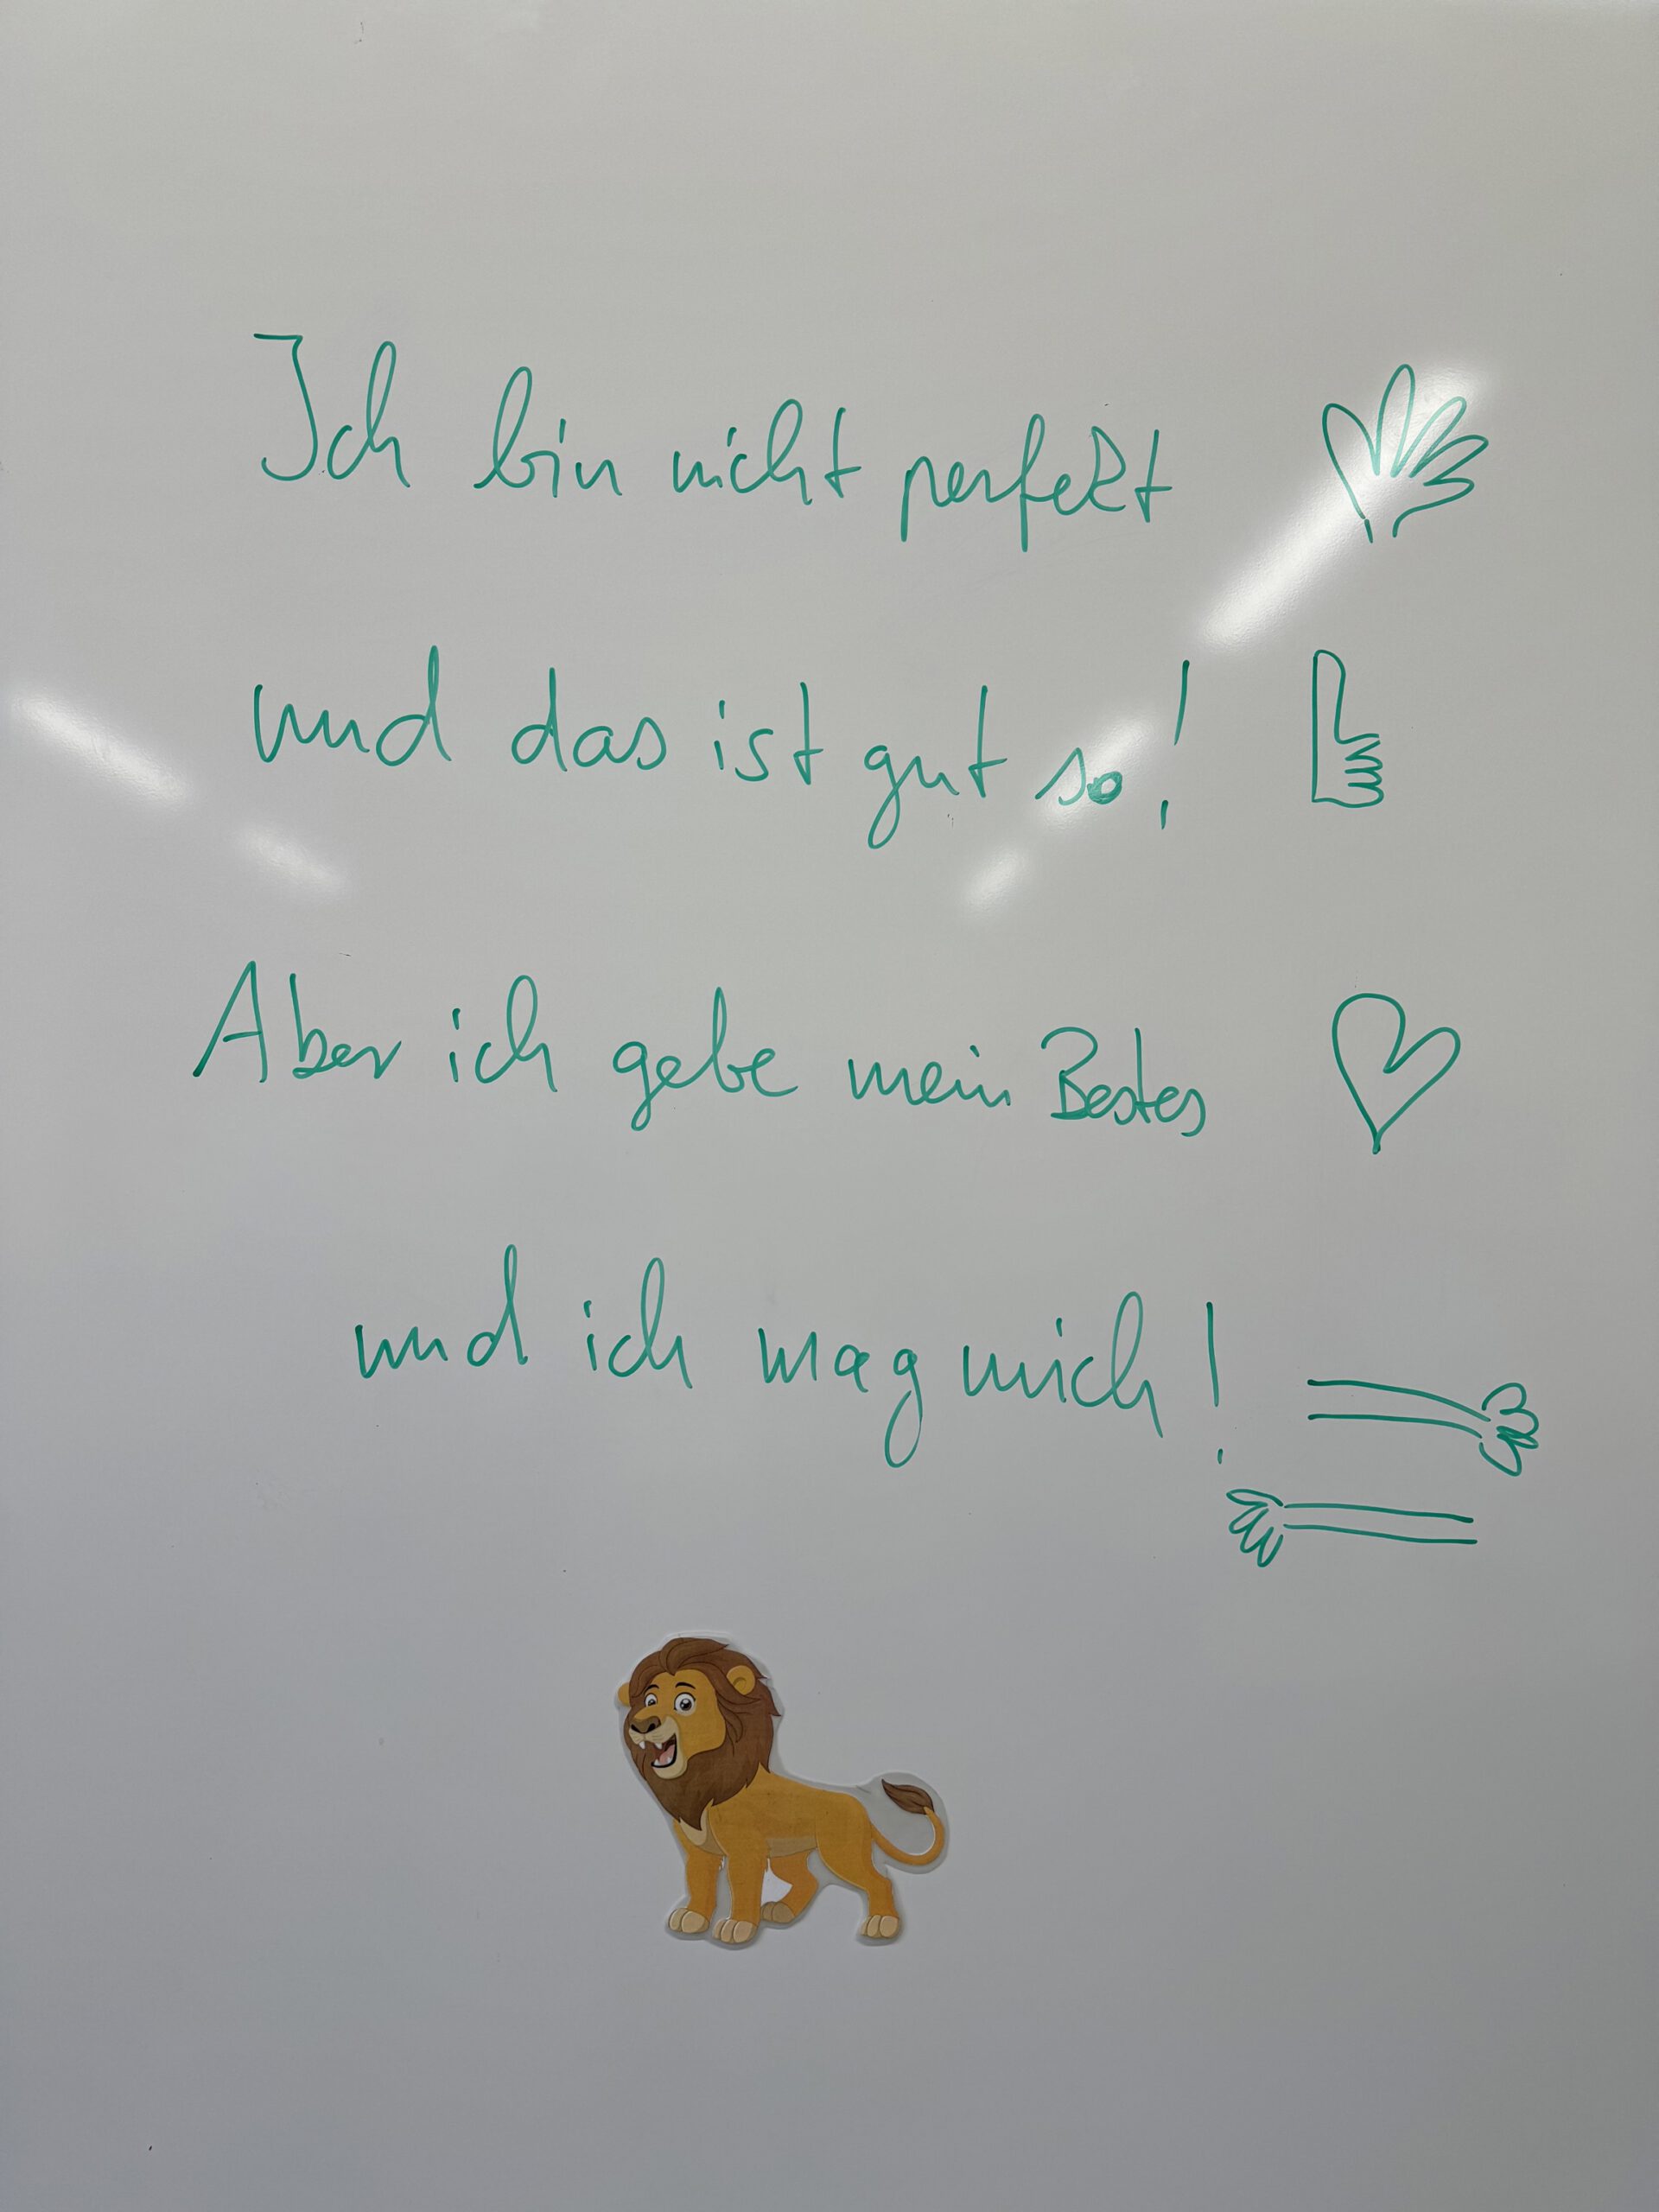 Ich bin nicht perfekt
und das ist gut so!
Aber ich gebe mein Bestes
und ich mag mich!